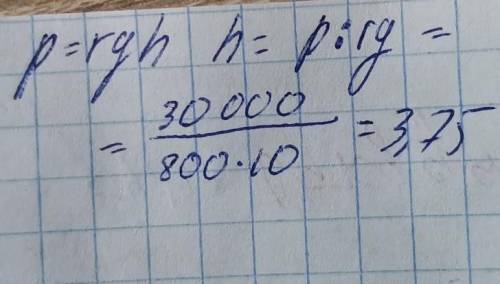 p=rgh h= p:rg =
= 30 000 / 800·10 = 3,75